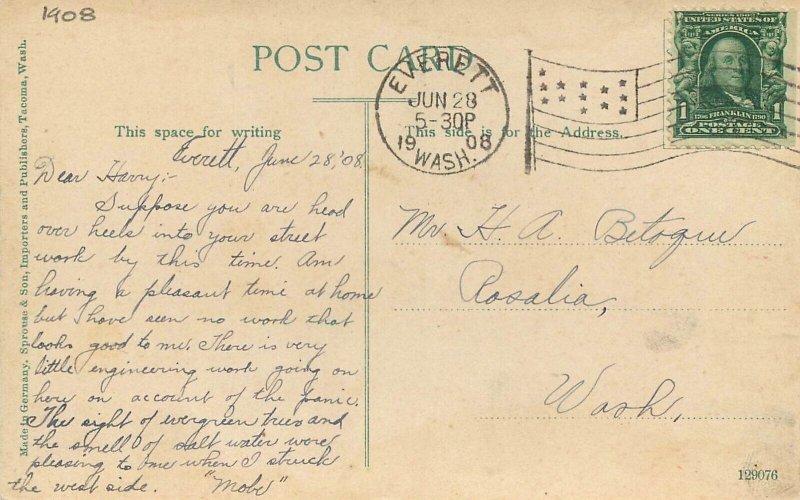 1908
POST CARD
This space for writing
This side is for the Address.
EVERETT
JUN 28
5-30P
1908
WASH.
SERIES 1902
UNITED STATES OF
AMERICA
1706 FRANKLIN 1790
1 POSTAGE 1
ONE CENT
Made in Germany. Sprouse & Son, Importers and Publishers, Tacoma, Wash.
Everett, June 28, '08.
Dear Harry:-
Suppose you are head
over heels into your street
work by this time. Am
having a pleasant time at home
but I have seen no work that
looks good to me. There is very
little engineering work going on
here on account of the panic.
The sight of evergreen trees and
the smell of salt water were
pleasing to me when I struck
the west side. "Mobe"
Mr. H. A.
Rosalia,
Wash.
129076